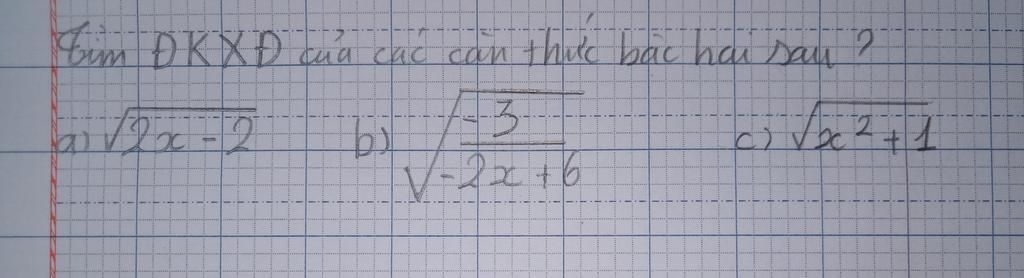 Tìm ĐKXĐ của các căn thức bậc hai sau?
a) √(2x - 2) b) √(-3/(-2x + 6)) c) √(x² + 1)